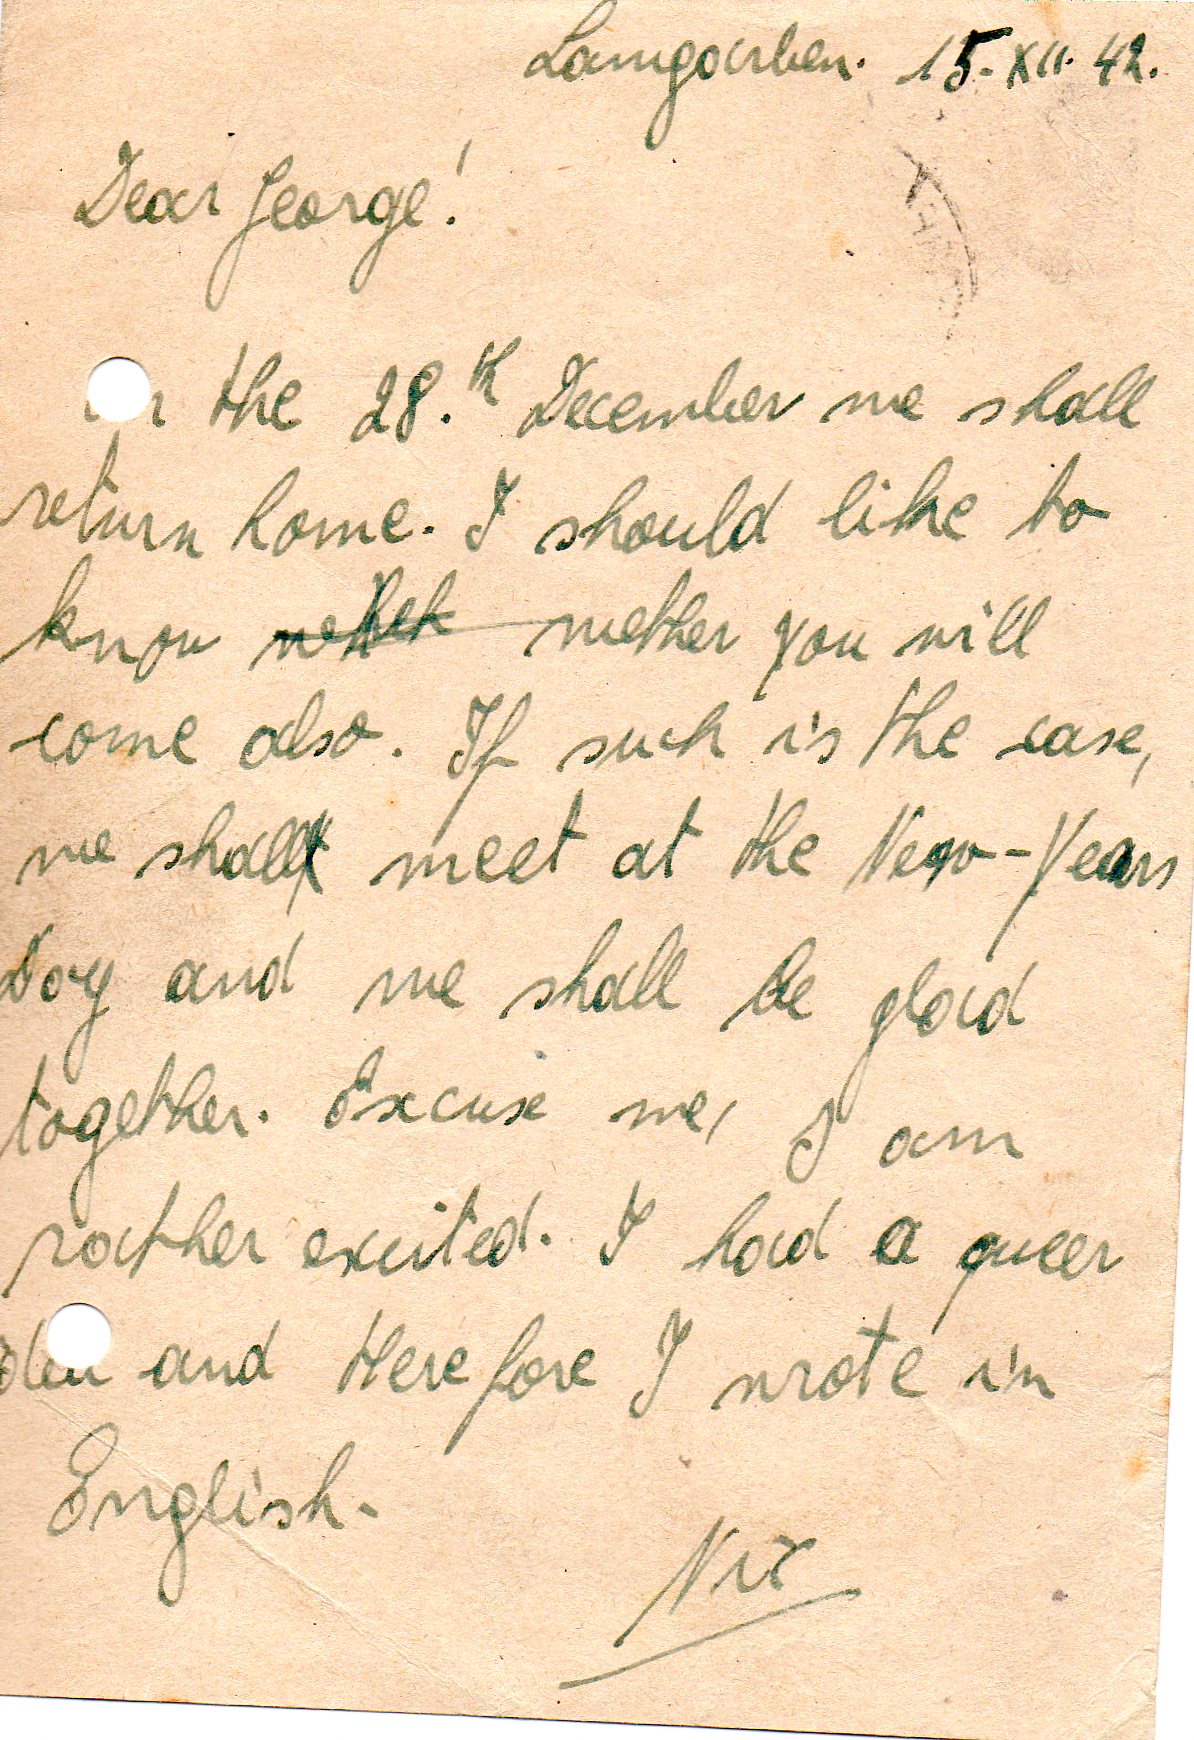 Langarben. 15. XII. 42.
Dear George!
the 28.th December we shall
return home. I should like to
know wether you will
come also. If such is the case,
we shall meet at the New-Years
Day and we shall be glad
together. Excuse me, I am
rather excited. I had a queer
and therefore I wrote in
English.
Nix